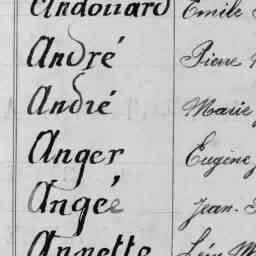 Andouard Emile
André Pierre
André Marie
Anger Eugène
Angée Jean-
Annette Léon M